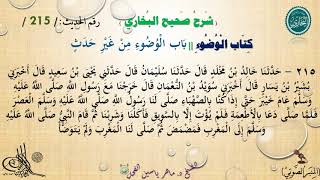 شرح صحيح البخاري
رقم الحديث: / 215 /
كتاب الوضوء || باب الوضوء من غير حدث
٢١٥ - حَدَّثَنَا خَالِدُ بْنُ مَخْلَدٍ قَالَ حَدَّثَنَا سُلَيْمَانُ قَالَ حَدَّثَنِي يَحْيَى بْنُ سَعِيدٍ قَالَ أَخْبَرَنِي
بُشَيْرُ بْنُ يَسَارٍ قَالَ أَخْبَرَنِي سُوَيْدُ بْنُ النُّعْمَانِ قَالَ خَرَجْنَا مَعَ رَسُولِ اللَّهِ صَلَّى اللَّهُ عَلَيْهِ
وَسَلَّمَ عَامَ خَيْبَرَ حَتَّى إِذَا كُنَّا بِالصَّهْبَاءِ صَلَّى لَنَا رَسُولُ اللَّهِ صَلَّى اللَّهُ عَلَيْهِ وَسَلَّمَ الْعَصْرَ
فَلَمَّا صَلَّى دَعَا بِالْأَطْعِمَةِ فَلَمْ يُؤْتَ إِلَّا بِالسَّوِيقِ فَأَكَلْنَا وَشَرِبْنَا ثُمَّ قَامَ النَّبِيُّ صَلَّى اللَّهُ عَلَيْهِ
وَسَلَّمَ إِلَى الْمَغْرِبِ فَمَضْمَضَ ثُمَّ صَلَّى لَنَا الْمَغْرِبَ وَلَمْ يَتَوَضَّأْ
د. ماهر ياسين الفحل